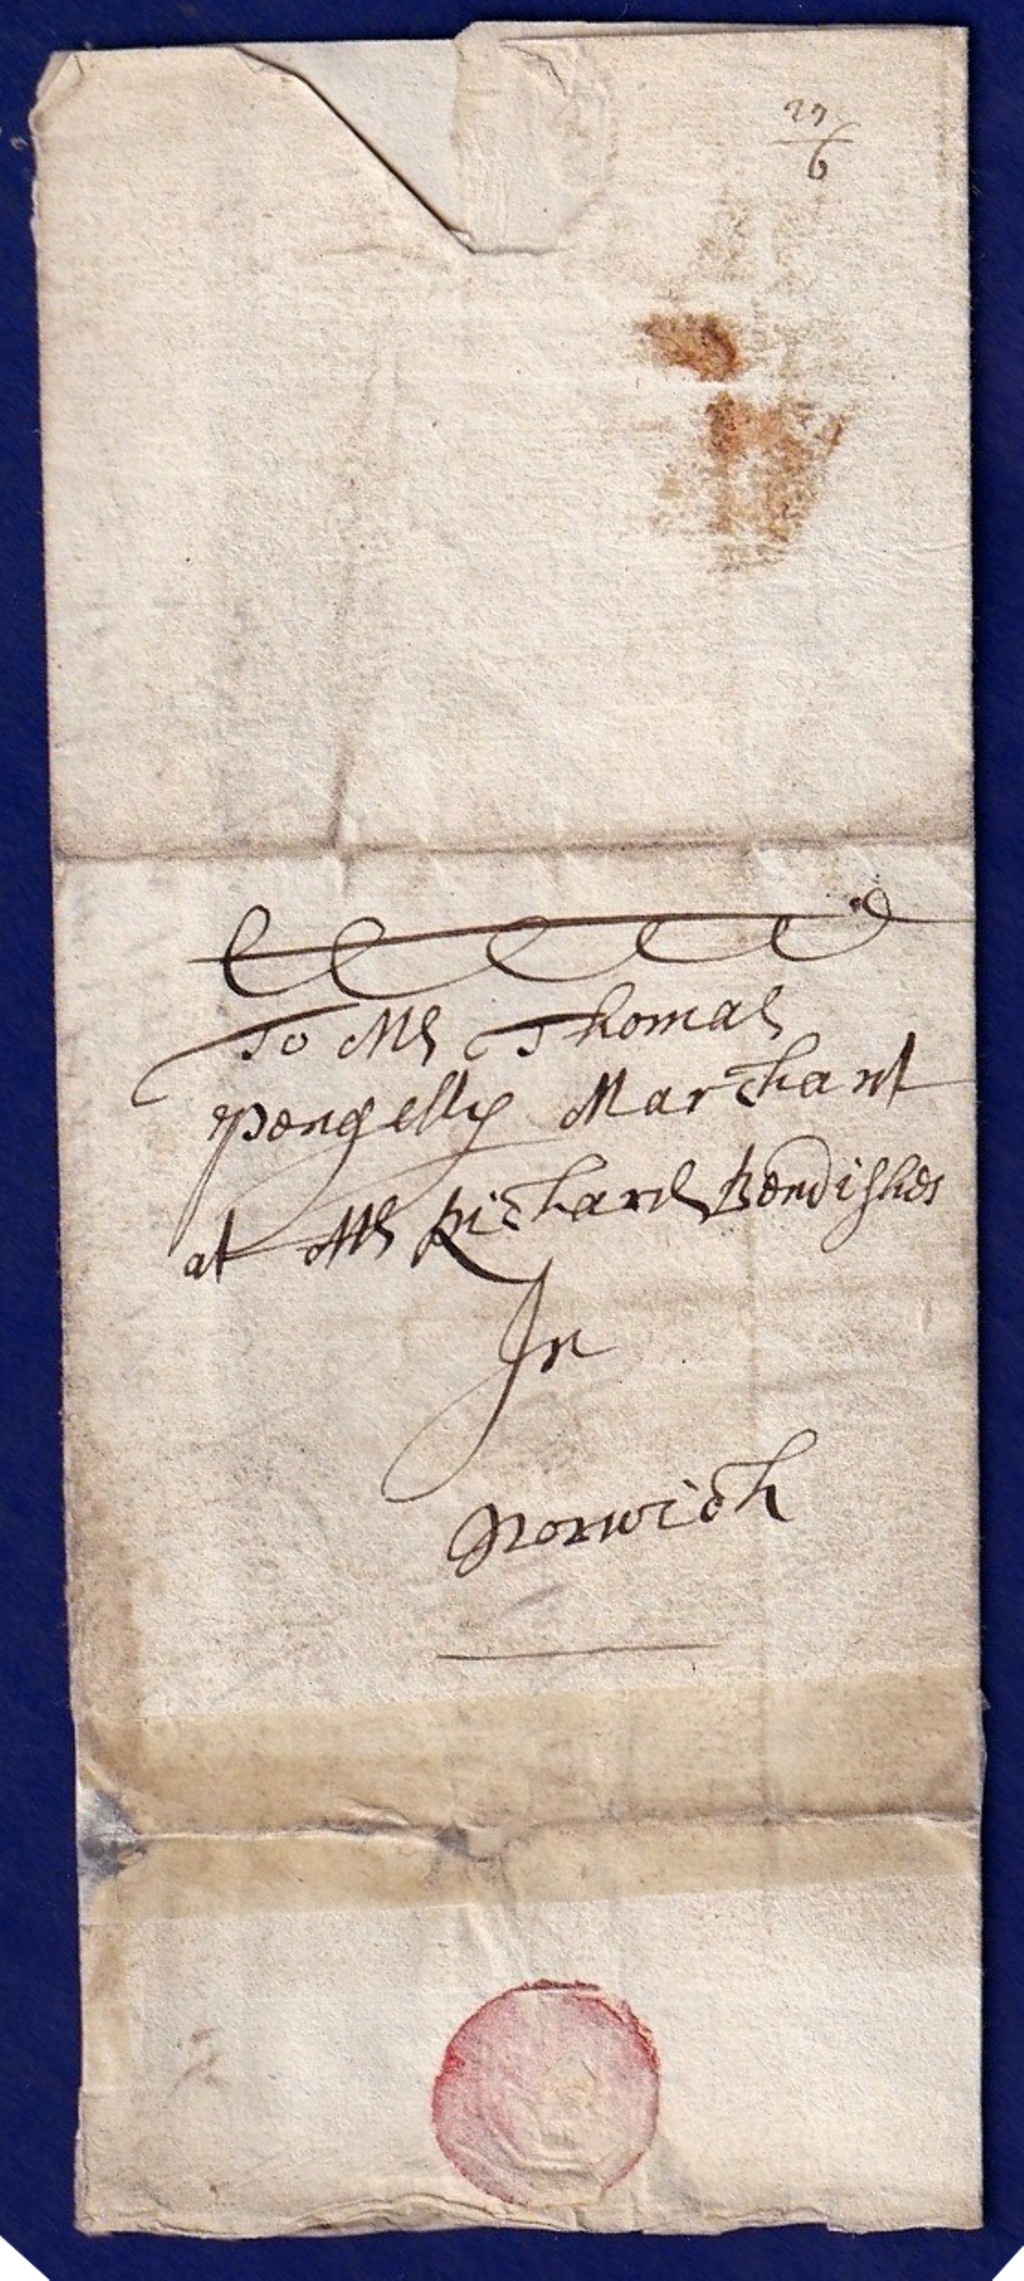 27
6
To Mr Thomas
Pengelly Marchant
at Mr Richard Bendishes
In
Norwich